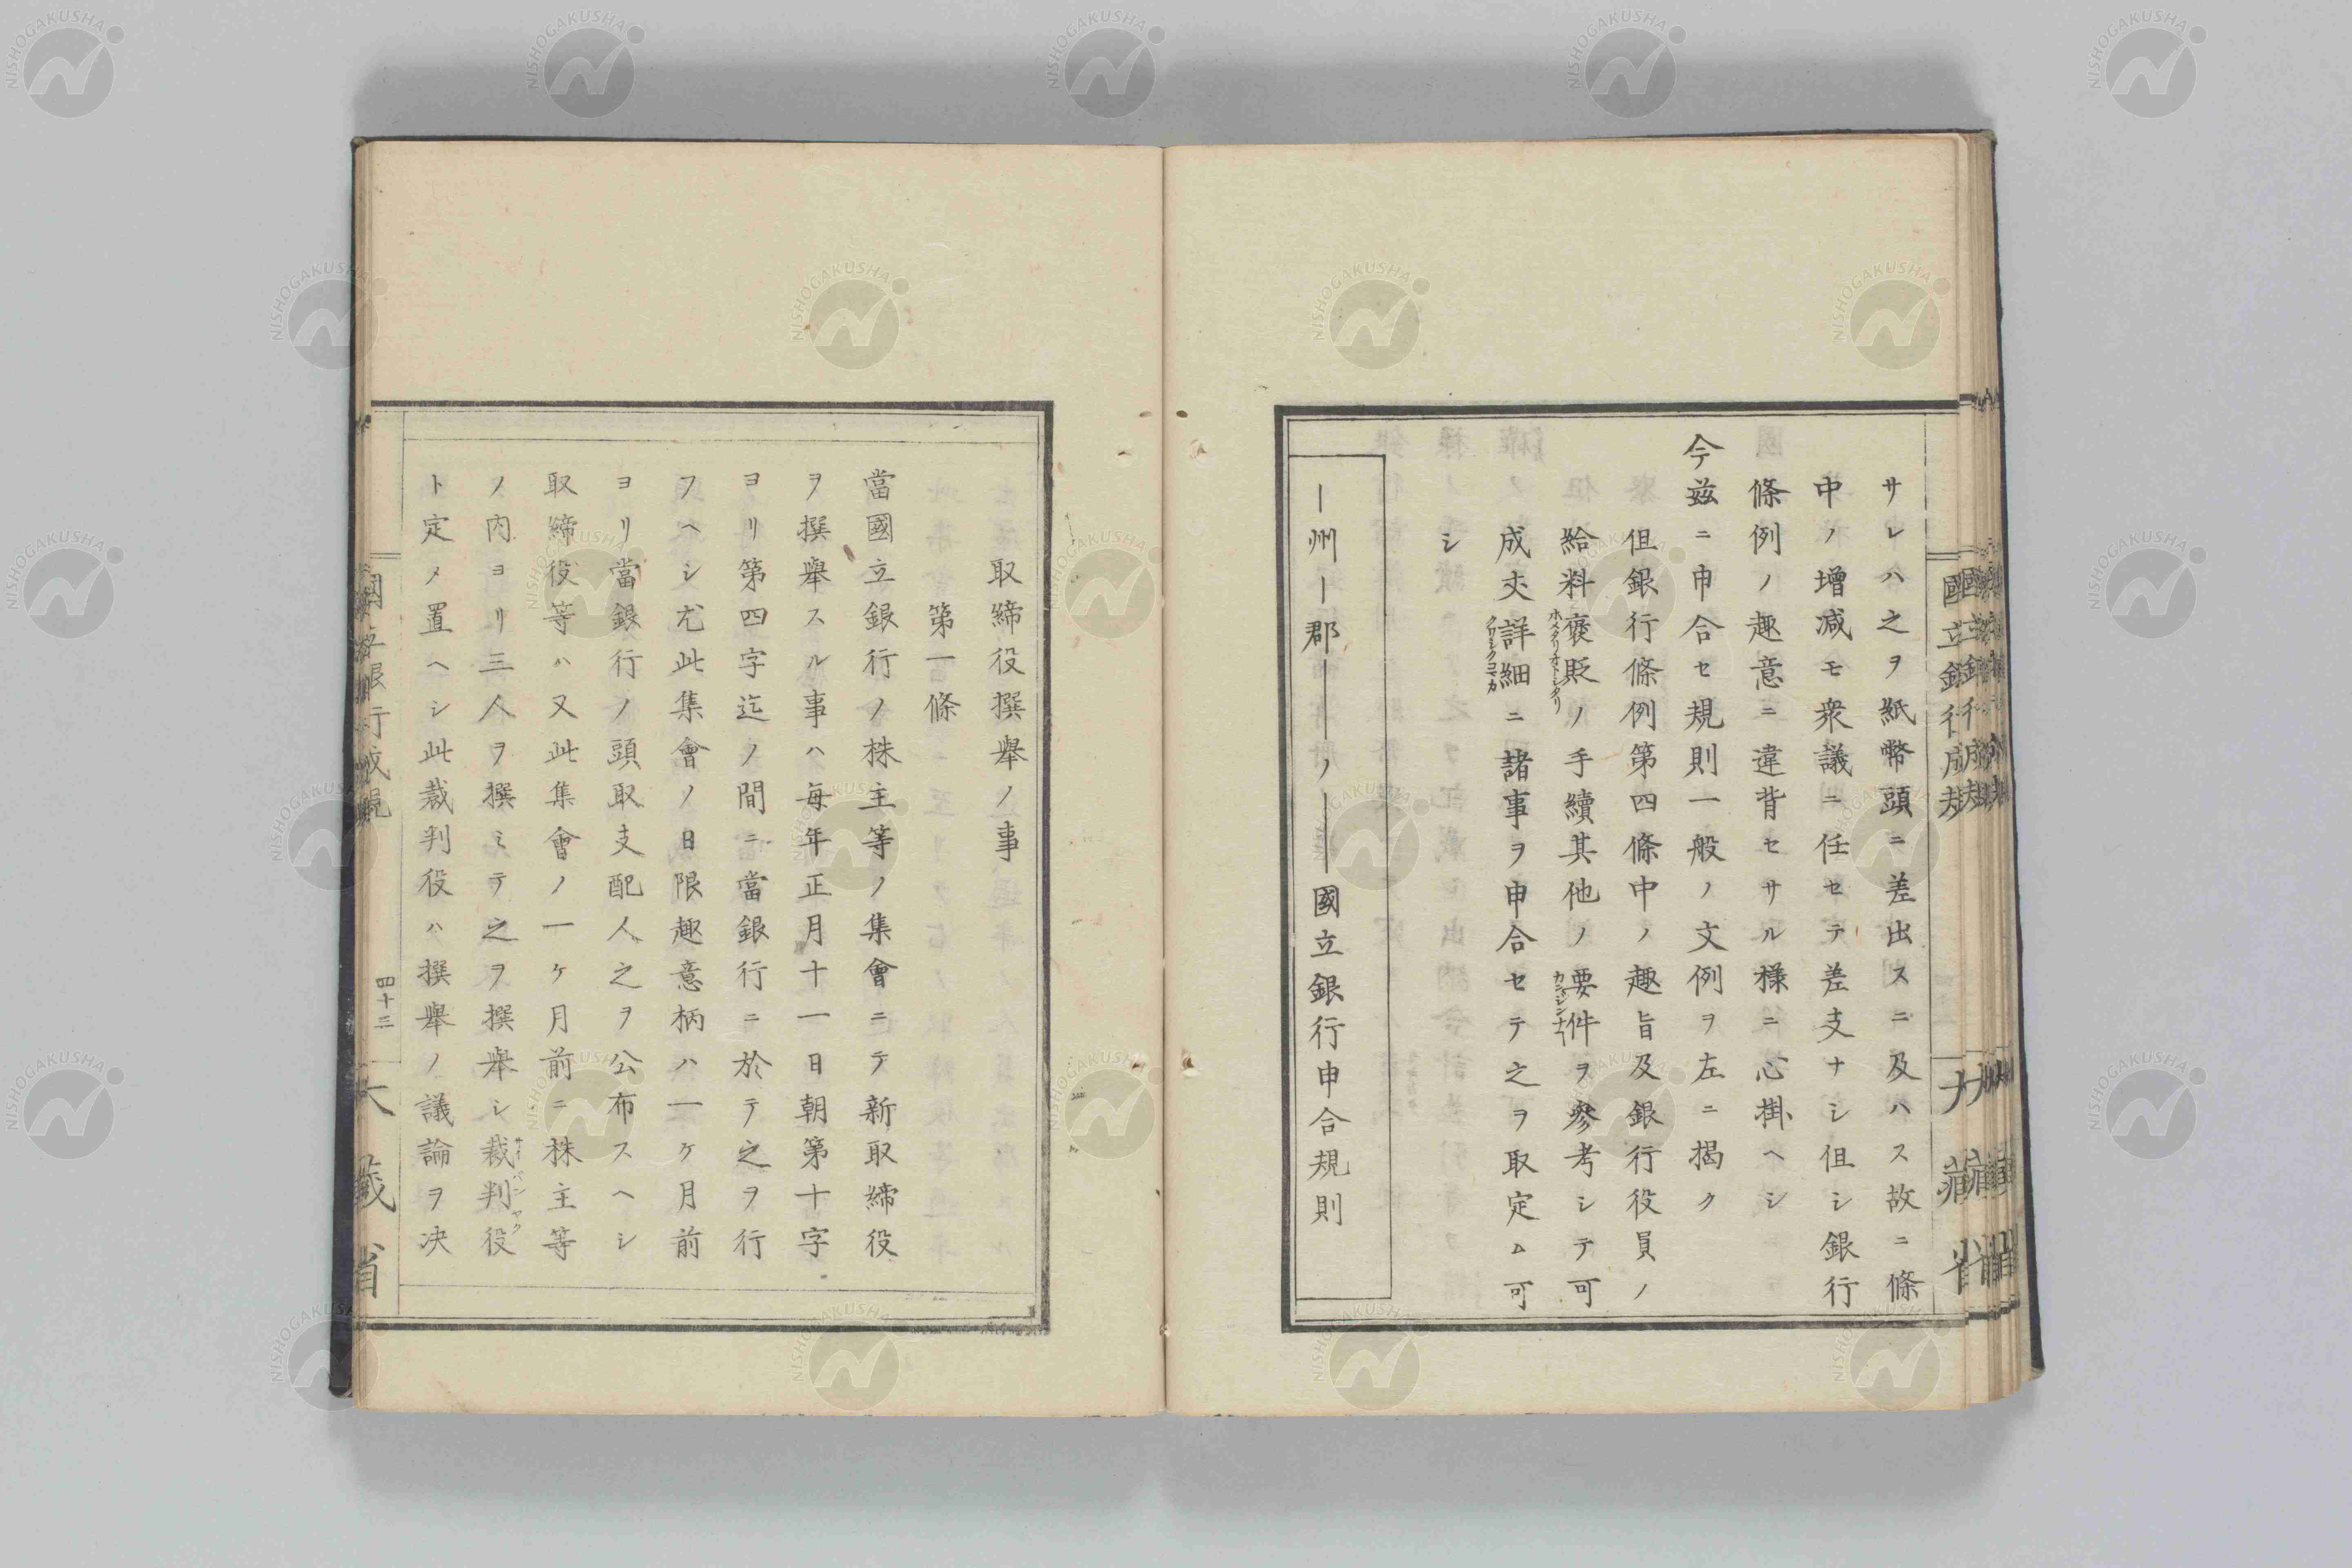 サレハ之ヲ紙幣頭ニ差出スニ及ハス故ニ條
中ノ增減モ衆議ニ任セテ差支ナシ但シ銀行
條例ノ趣意ニ違背セサル樣ニ心掛ヘシ
今茲ニ申合セ規則一般ノ文例ヲ左ニ揭ク
但銀行條例第四條中ノ趣旨及銀行役員ノ
給料褒貶ノ手續其他ノ要件ヲ參考シテ可
ホメタリオトシタリ
成丈詳細ニ諸事ヲ申合セテ之ヲ取定ム可
クワシクコマカ
シ
ー州ー郡ーーーノーーー國立銀行申合規則
取締役撰擧ノ事
第一條
當國立銀行ノ株主等ノ集會ニテ新取締役
ヲ撰擧スル事ハ每年正月十一日朝第十字
ヨリ第四字迄ノ間ニ當銀行ニ於テ之ヲ行
フヘシ尤此集會ノ日限趣意柄ハ一ケ月前
ヨリ當銀行ノ頭取支配人之ヲ公布スヘシ
取締役等ハ又此集會ノ一ケ月前ニ株主等
ノ內ヨリ三人ヲ撰ミテ之ヲ撰擧シ裁判役
サイバンヤク
ト定メ置ヘシ此裁判役ハ撰擧ノ議論ヲ決
四十三
大藏省
NISHOGAKUSHA